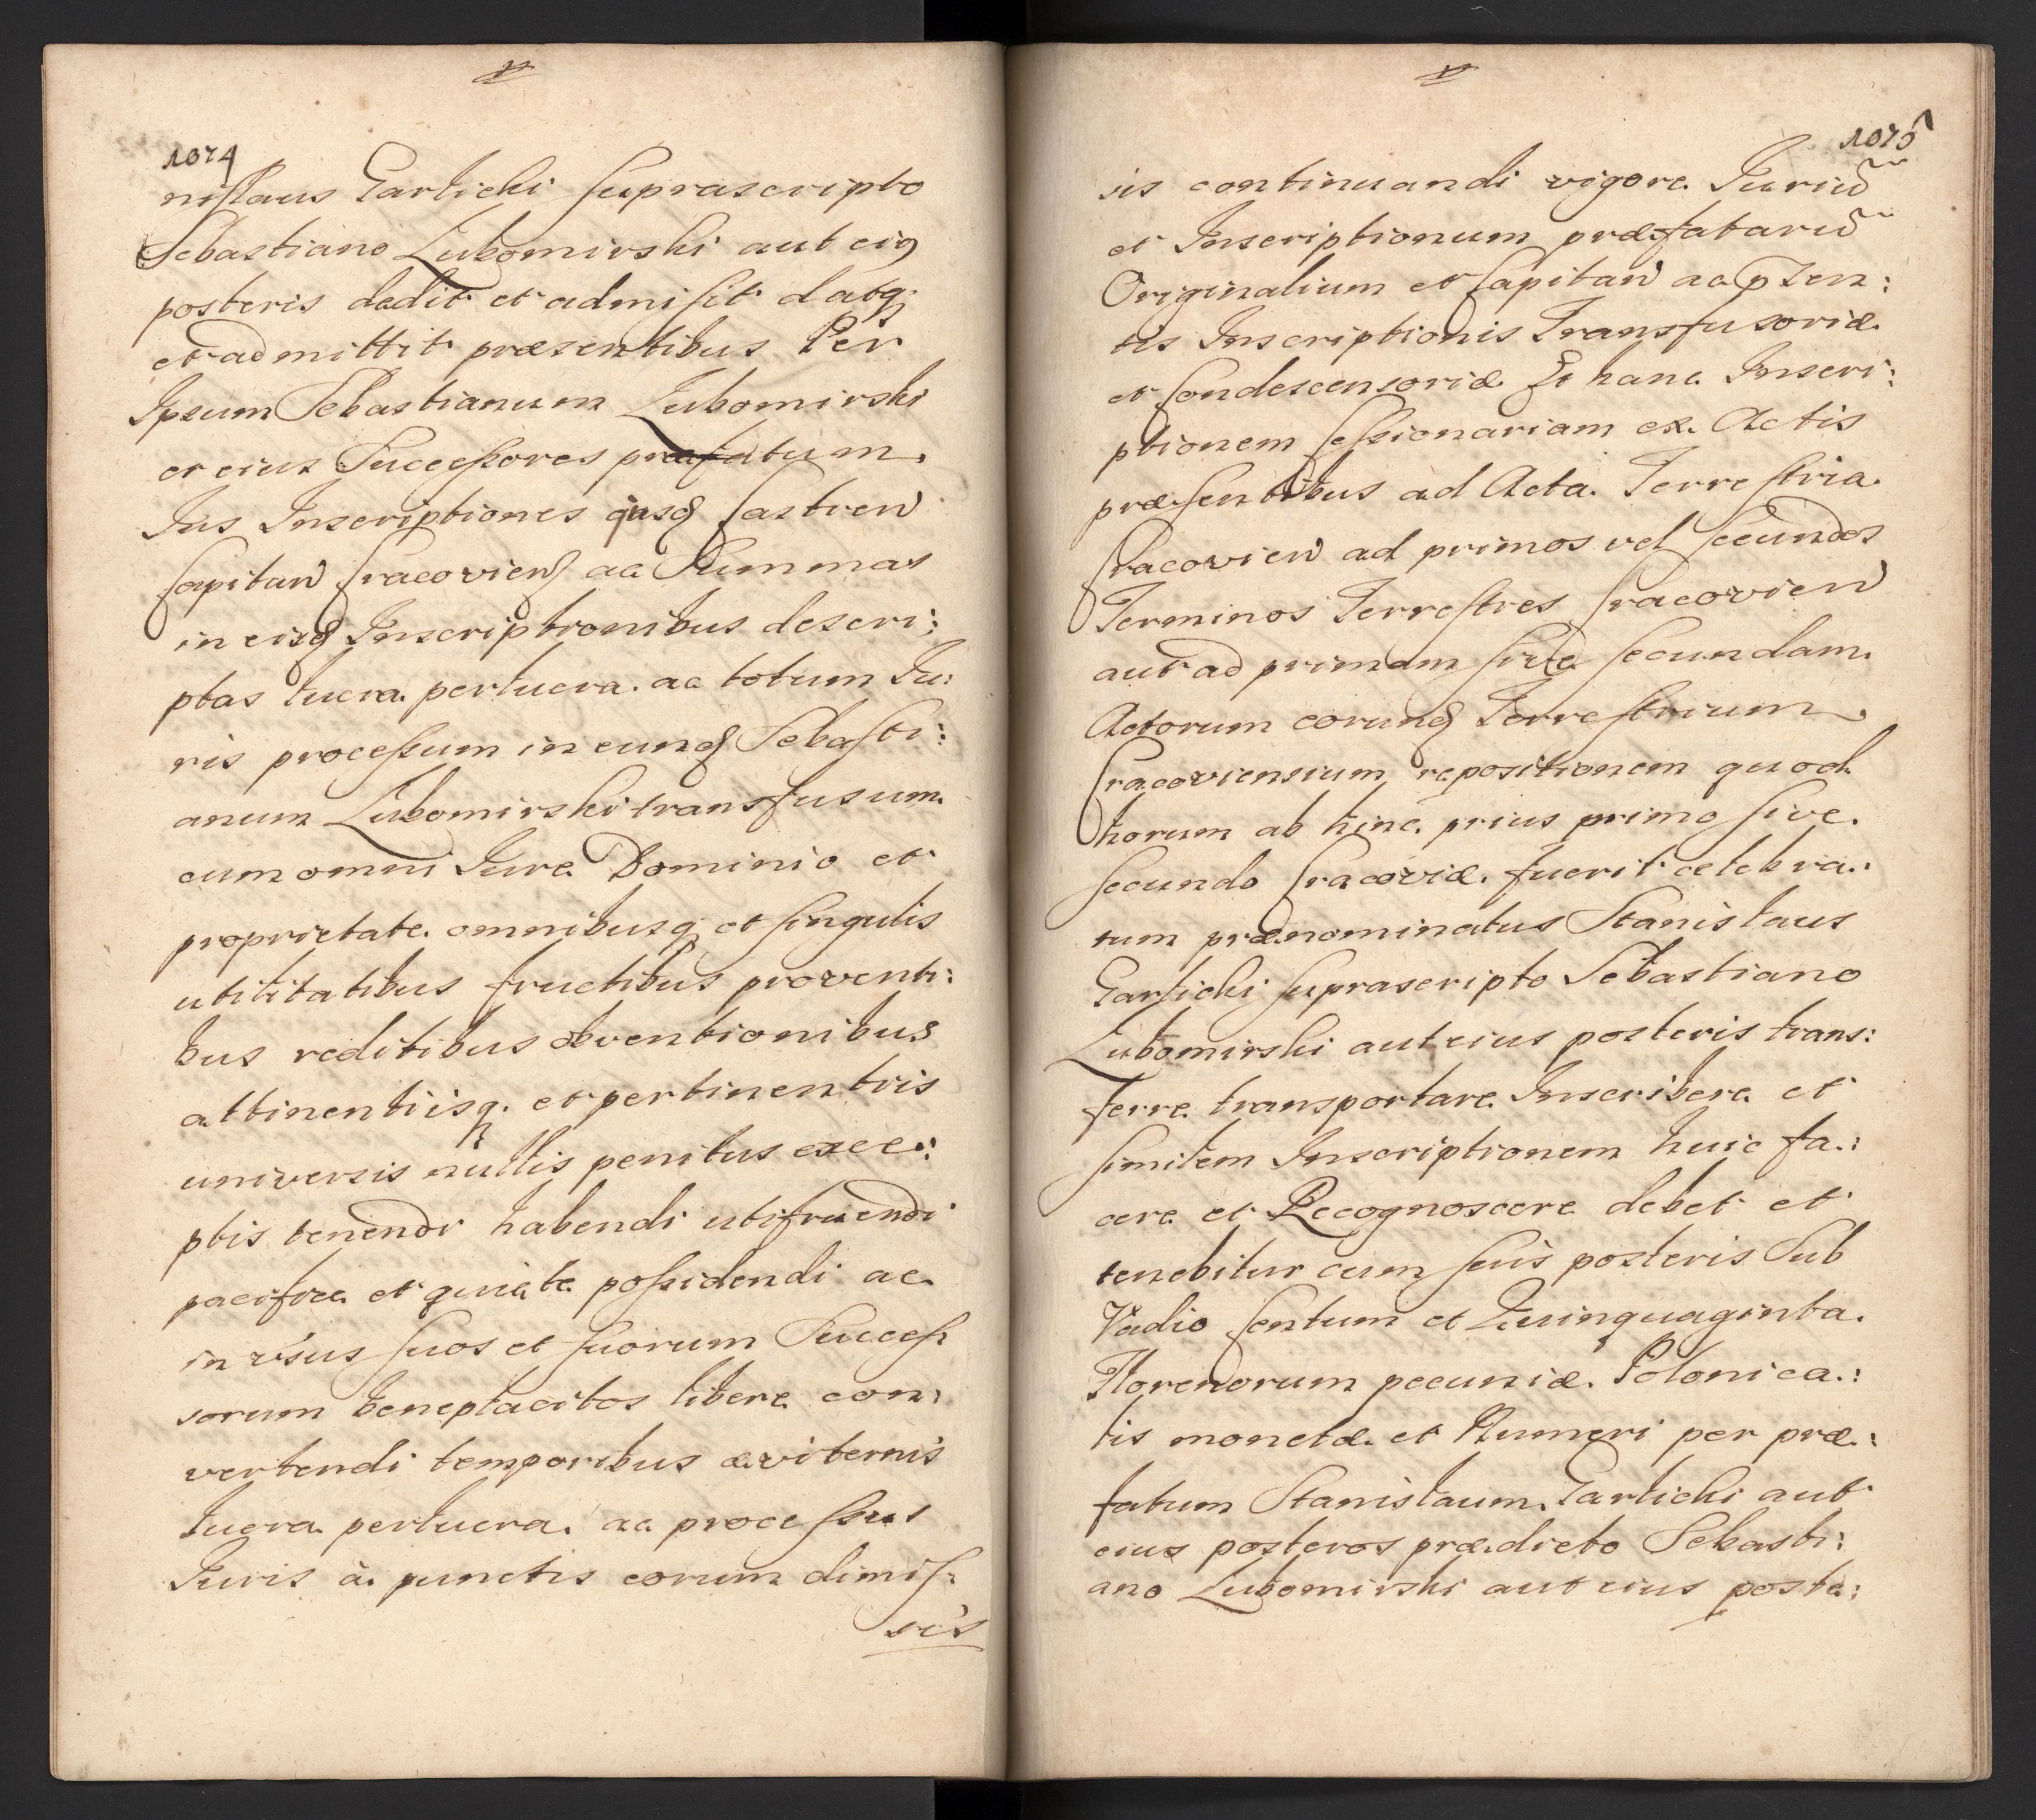 1074
nislaus Garlicki suprascripto
Sebastiano Lubomirski aut eiq
posteris dedit et admisit datq
et admittit præsentibus Per
Ipsum Sebastianum Lubomirski
et eius Successores præfatum
Ius Inscriptiones Castren
Capitan Cracovien ac Summas
in eisd Inscriptionibus descri:
ptas lucra perlucra ac totum Iu:
ris processum in eund Sebasti:
anum Lubomirski transfusum
cum omni Iure Dominio et
proprietate omnibusq et singulis
utilitatibus fructibus proventi:
bus reditibus obventionibus
attinentiisq et pertinentiis
universis nullis penitus exce:
ptis tenendi habendi utifruendi
pacifice et quiete possidendi ac
in usus suos et suorum Succes:
sorum beneplacitos libere con:
vertendi temporibus æviternis
lucra perlucra ac processus
Iuris à punctis eorum dimis:
sis
1075
sis continuandi vigore Iuriu
et Inscriptionum præfataru
Originalium et Capitan ac pzen:
tis Inscriptionis Transfusoriæ
et Condescensoriæ Et hanc Inscri:
ptionem Cessionariam ex Actis
præsentibus ad Acta Terrestria
Cracovien ad primos vel secundos
Terminos Terrestres Cracovien
aut ad primam sive secundam
Actorum eorund Terrestrium
Cracoviensium repositionem quod
horum ab hinc prius primo sive
secundo Cracoviæ fuerit celebra:
tum prænominatus Stanislaus
Garlicki suprascripto Sebastiano
Lubomirski aut eius posteris trans:
ferre transportare Inscribere et
similem Inscriptionem huic fa:
cere et Recognoscere debet et
tenebitur cum suis posteris Sub
Vadio Centum et Quinquaginta
Florenorum pecuniæ Polonica:
lis monetæ et Numeri per præ:
fatum Stanislaum Garlicki aut
eius posteros prædicto Sebasti:
ano Lubomirski aut eius poste: